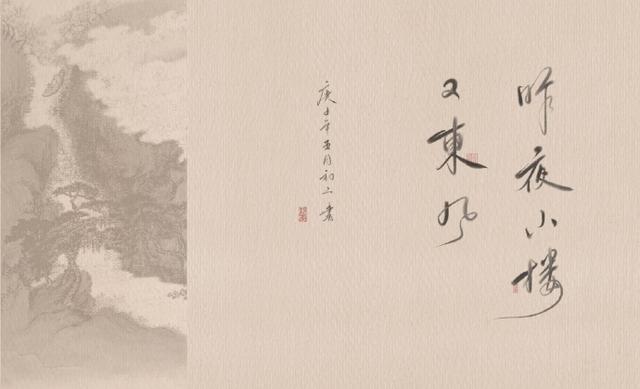 昨夜小楼
又東风
庚子年五月初二書